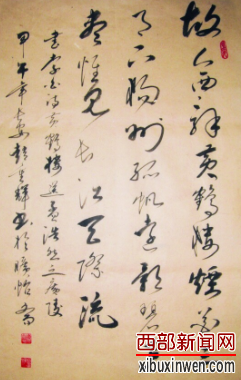 故人西辞黄鹤楼烟花三
月下扬州孤帆远影碧空
尽惟见长江天际流
书李白诗黄鹤楼送孟浩然之广陵
甲午年
西部新闻网
xibuxinwen.com